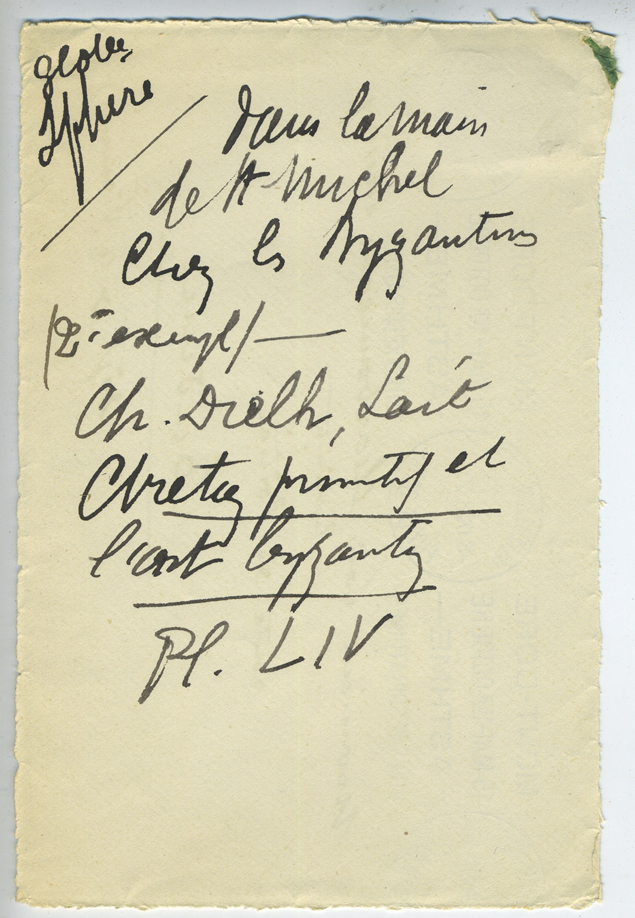 globe
Sphere
dans la main
de St Michel
Chez les Byzantins
(2e exempl)—
Ch. Dielh, L'art
Chretien primitif et
l'art byzantin
Pl. LIV